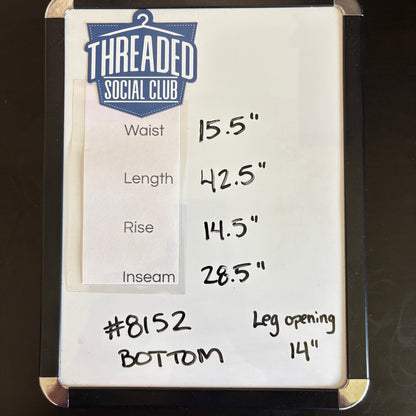 THREADED
SOCIAL CLUB
Waist 15.5"
Length 42.5"
Rise 14.5"
Inseam 28.5"
#8152 Leg opening
BOTTOM 14"